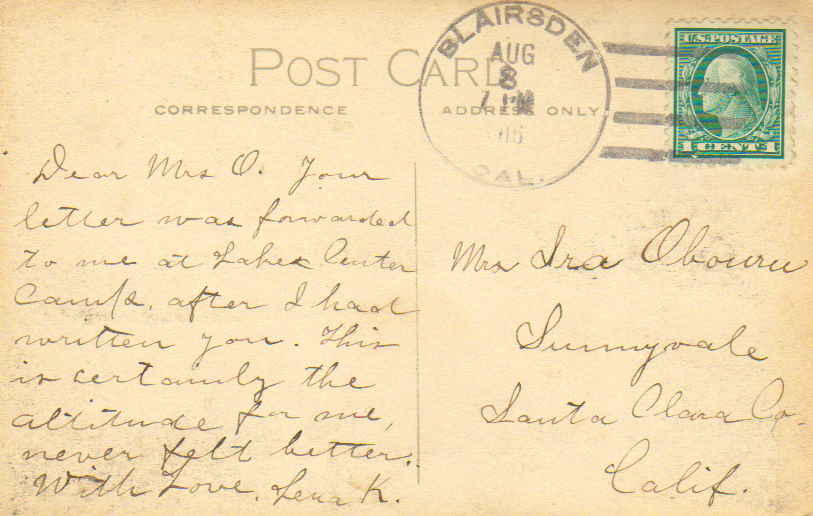 POST CARD
CORRESPONDENCE
ADDRESS ONLY
BLAIRSDEN
AUG
8
CAL.
U.S. POSTAGE
1 CENT 1
Dear Mrs O. Your
letter was forwarded
to me at Lakes Center
Camp, after I had
written you. This
is certainly the
altitude for me,
never felt better.
With Love. Lena K.
Mrs Ira
Sunnyvale
Santa Clara Co.
Calif.